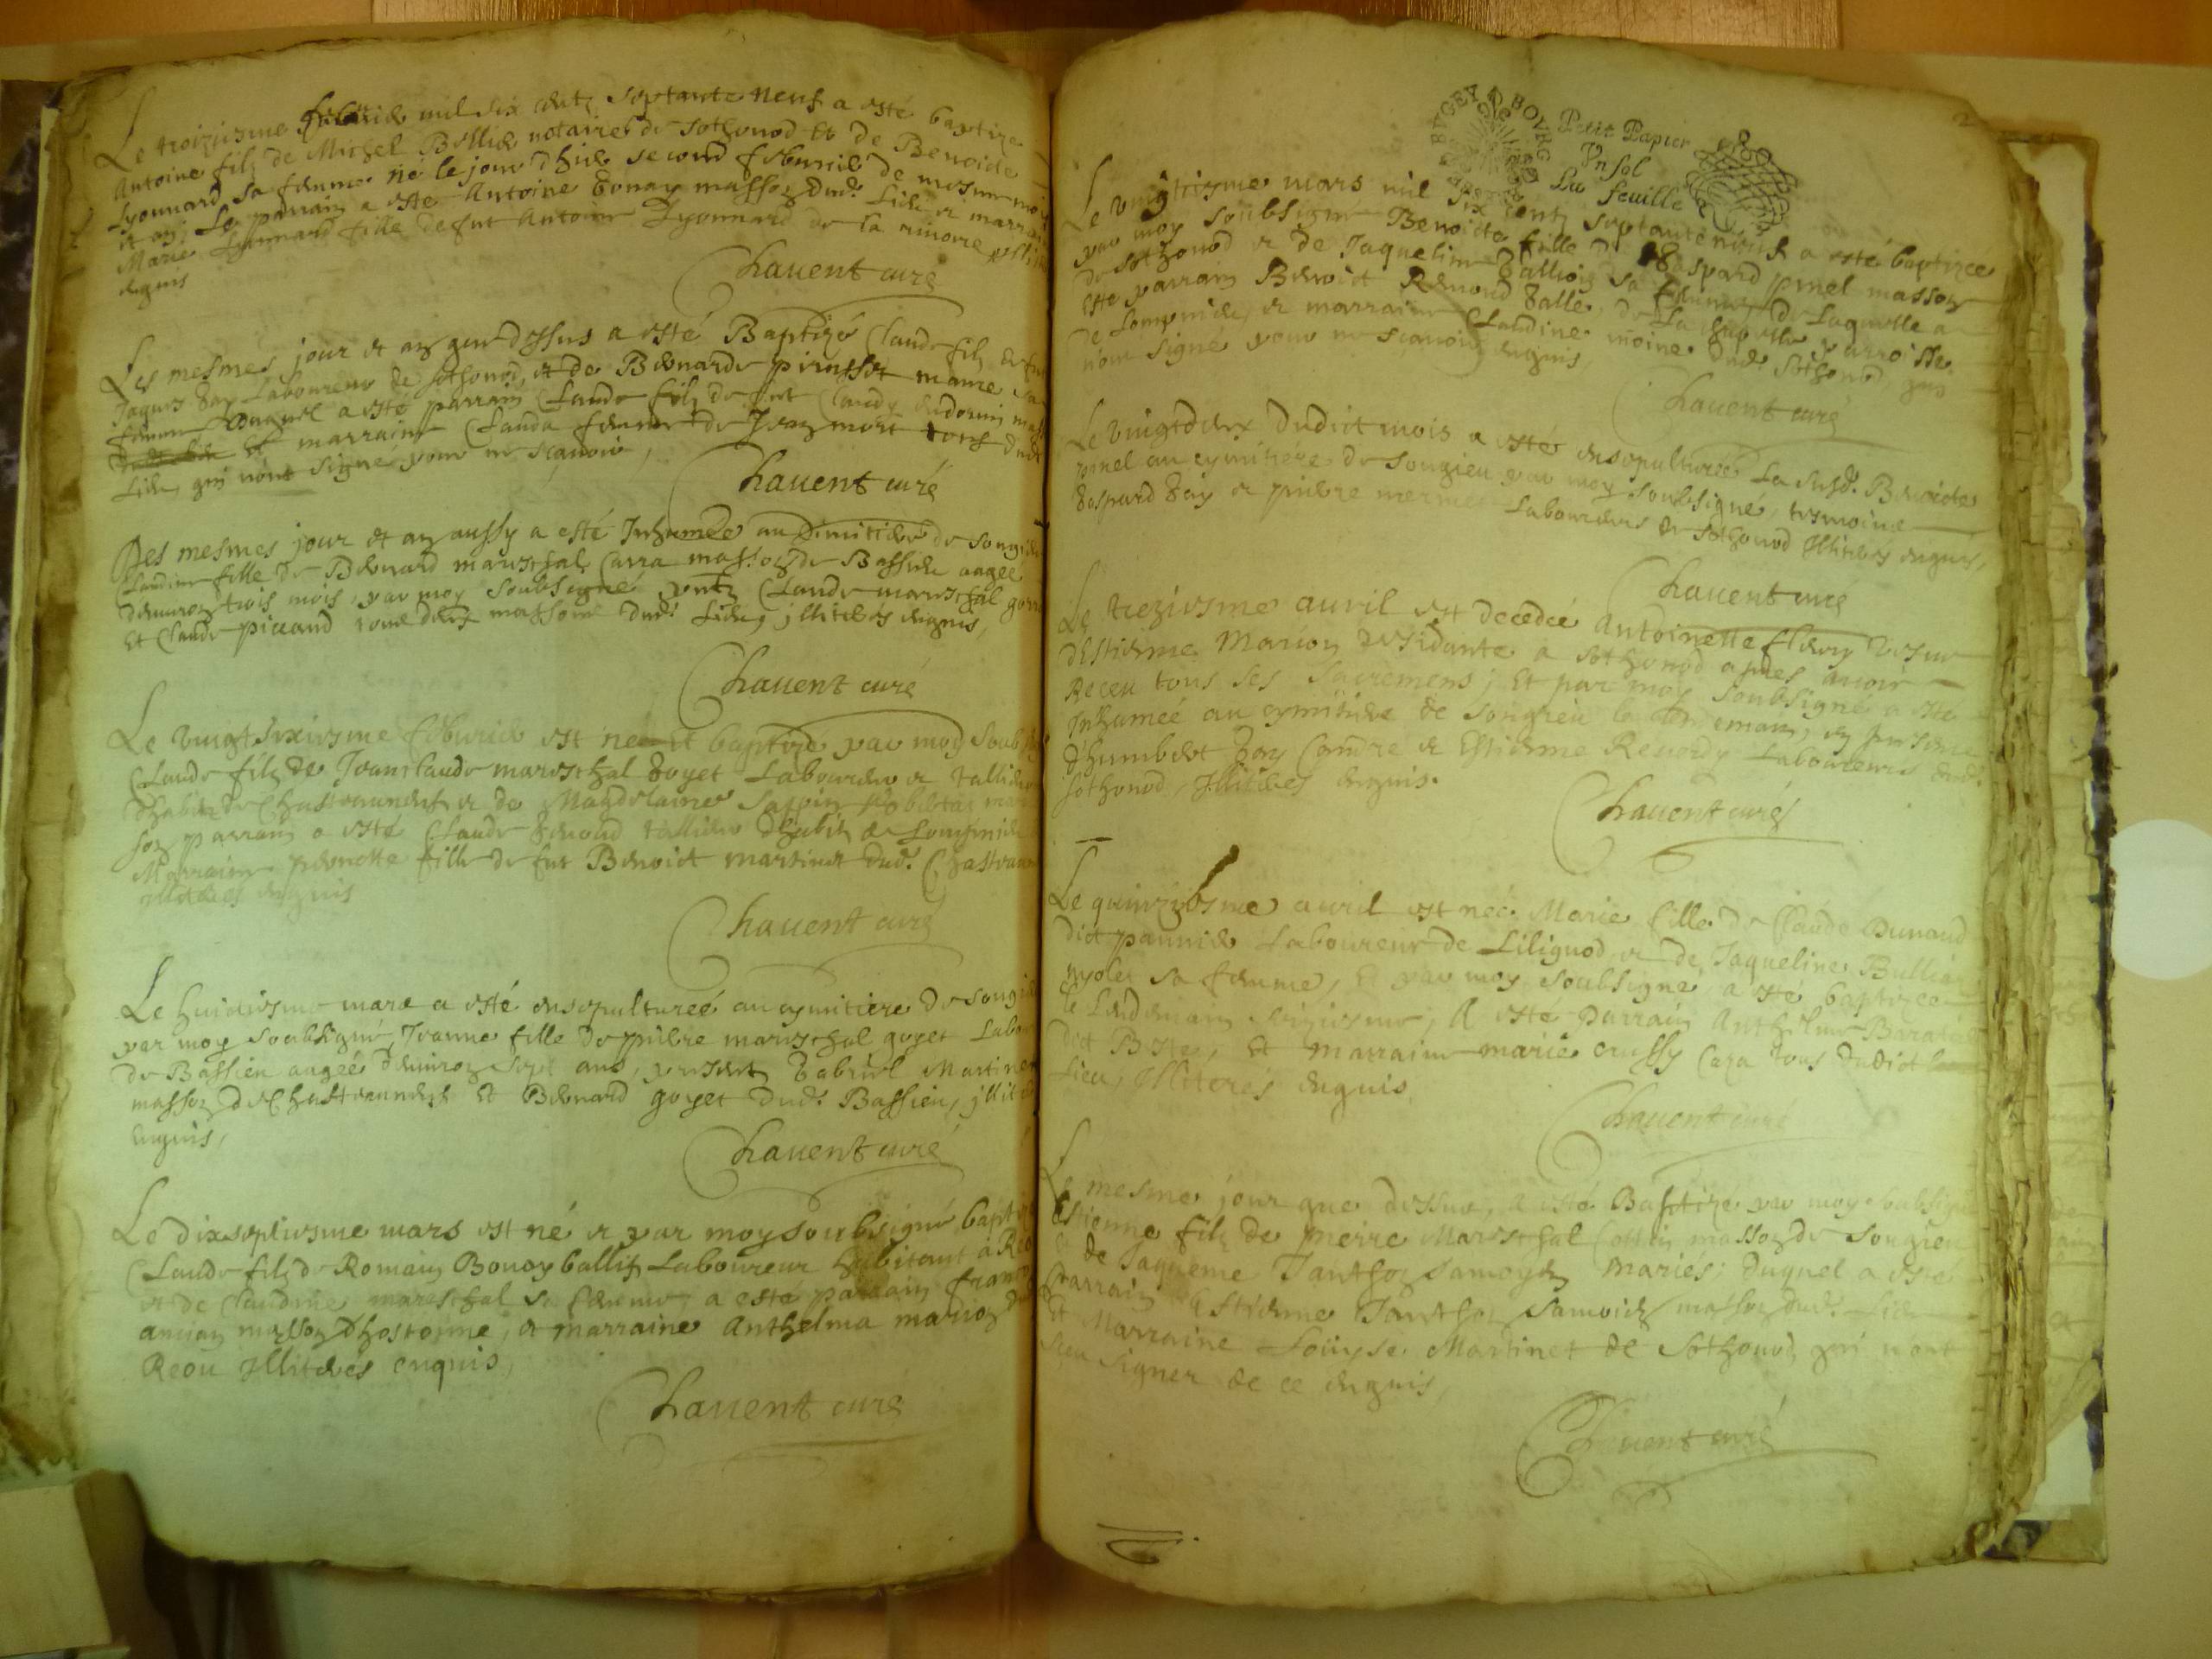 Le troiziesme febvrier mil six centz septante neuf a esté baptize
Antoine filz de Michel Bellier notaire de Sothonod et de Benoicte
Lyonnard sa femme né le jour d'hier second febvrier de mesme mois
et an; Le parrain a esté Antoine Gonay masson dud. Lieu et marraine
Marie Lyonnard fille de fut Antoine Lyonnard de la
enquis
Chavent curé
Les mesmes jour et an que dessus a esté Baptizé Claude filz de fut
Jaques Fay Laboureur de Sothonod, et de Bernarde maire sa
femme Duquel a esté parrain Claude filz de fut Claude
et marraine Clauda femme de mort tous dudt
Lieu, qui nont signé pour ne scavoir,
Chavent curé
Des mesmes jour et an aussy a esté Inhumée au Cimitiere de Songieu
Claudine fille de Bernard mareschal Carra masson de Bassieu aagee
denviron trois mois, par moy soubsigné pntz Claude mareschal
Et Claude picaud tous deux massons dud. Lieu, jlliteres enquis,
Chavent curé
Le vingt sixiesme febvrier est né et baptizé par moy soubs
Claude filz de Jeanclaude mareschal Goyet Laboureur et
de et de Magdelaine Sappin
son parrain a esté Claude
Marraine pernette fille de fut Benoict martinet dud.
illiteres enquis
Chavent curé
Le huictiesme mars a esté ensepulturée au cymitiere de Songieu
par moy soubsigné, Jeanne fille de pierre mareschal goyet Labou
de Bassieu aagée denviron sept ans, presentz Gabriel Martinet
masson de et Bernard goyet dud. Bassieu, jllit
enquis,
Chavent curé
Le dixseptiesme mars est né et par moy soubsigné baptizé
Claude filz de Romain Bonoy ballif Laboureur habitant a Reo
et de Claudine mareschal sa femme, a esté parrain franc
ancian masson dhostonne, et marraine Anthelma marion de
Reou Illiteres enquis,
Chavent curé
BVGEY BOVRG
Petit Papier
Vn sol
La feuille
2
Le vingtiesme mars mil six centz septante neuf a esté baptizee
par moy soubsigné Benoicte fille de Gaspard pinel masson
de Sothonod et de Jaqueline Gallioz sa femme, de Laquelle a
esté parrain Benoict Remond Galle, de La chapelle parroisse
de Lompnieu, et marraine Claudine moine dud. Sothonod, qui
n'ont signé pour ne scavoir enquis,
Chavent curé
Le vingtdeux dudict mois a esté ensepulturée La susd. Benoicte
pinel au cymitiere de Songieu par moy soubsigné, tesmoins
Gaspard Fay et pierre mermet Laboureurs de Sothonod Illiteres enquis,
Chavent curé
Le treziesme avril est decedée Antoinette fleury vefve
dEstienne Marion residante a Sothonod apres avoir
Receu tous ses sacremens; Et par moy soubsigné a esté
Inhumée au cymitiere de Songieu le lendemain, en presence
d'humbert Fay Candre et Estienne Revordy Laboureurs dud.
Sothonod, Illiteres enquis.
Chavent curé
Le quinziesme avril est née Marie fille de Claude Dunand
dict pannier Laboureur de Lilignod, et de Jaqueline Bullia
sa femme, Et par moy soubsigné a esté baptizee
le Lendemain seiziesme; A esté parrain Anthelme Barat
dict Beste, Et Marraine marie crussy Cara tous dudict
Lieu, Illiteres enquis.
Chavent curé
Le mesme jour que dessus, a esté Baptizé par moy soubsigné
Estienne filz de pierre Mareschal Cottin masson de Songieu
et de Jaqueme Tanthoz Samoyen mariés; duquel a esté
parrain Estienne Tanthoz Samoien masson dud. Lieu
Et Marraine Louyse Martinet de Sothonod, qui n'ont
sceu signer de ce enquis,
Chavent curé